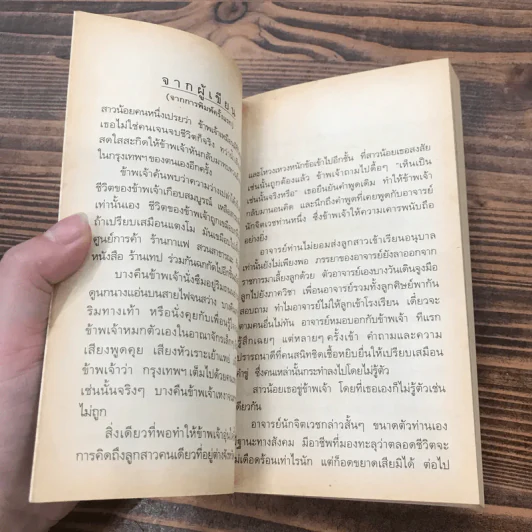 จากผู้เขียน
(จากการพิมพ์ครั้งแรก)
สาวน้อยคนหนึ่งเปรยว่า ข้าพเจ้าเหมือน
เธอไม่ใช่คนเจนจบชีวิตก็จริง
สดใสสะกิดให้ข้าพเจ้าหันกลับมา
ในกรุงเทพฯ ของตนเองอีกครั้ง
ข้าพเจ้าค้นพบว่าความว่างเปล่า
ชีวิตของข้าพเจ้าเกือบสมบูรณ์
เท่านั้นเอง ชีวิตของข้าพเจ้าถูก
ถ้าเปรียบเสมือนแตงโม มัน
ศูนย์การค้า ร้านกาแฟ สวนสาธารณะ
หนังสือ ร้านเทป ร่วมกัน
บางคืนข้าพเจ้านั่งซึมอยู่ริม
ดูนกนางแอ่นบนสายไฟจนสว่าง
ริมทางเท้า หรือนั่งคุยกับเพื่อน
ข้าพเจ้าหมกตัวเองในอาณาจักร
เสียงพูดคุย เสียงหัวเราะเย้า
ข้าพเจ้าว่า กรุงเทพฯ เต็มไปด้วย
เช่นนั้นจริงๆ บางคืนข้าพเจ้าเหงา
ไม่ถูก
สิ่งเดียวที่พอทำให้ข้าพเจ้า
การคิดถึงลูกสาวคนเดียวที่อยู่ต่าง
และโหวงเหวงหนักข้อเข้าไปอีกชั้น ที่สาวน้อยเธอสงสัย
เช่นนั้นถูกต้องแล้ว ข้าพเจ้าถามไปดื้อๆ "เห็นเป็น
เช่นนั้นจริงหรือ" เธอยืนยันคำพูดเดิม ทำให้ข้าพเจ้า
กลับมานอนคิด และนึกถึงคำพูดที่เคยพูดกับอาจารย์
นักจิตเวชท่านหนึ่ง ซึ่งข้าพเจ้าให้ความเคารพนับถือ
อย่างยิ่ง
อาจารย์ท่านไม่ยอมส่งลูกสาวเข้าเรียนอนุบาล
เท่านั้นยังไม่เพียงพอ ภรรยาของอาจารย์ยังลาออกจาก
ราชการมาเลี้ยงลูกด้วย ตัวอาจารย์เองบางวันเดินจูงมือ
ลูกไปยังภาควิชา เพื่อนอาจารย์รวมทั้งลูกศิษย์พากัน
สอบถาม ทำไมอาจารย์ไม่ให้ลูกเข้าโรงเรียน เดี๋ยวจะ
ตามคนอื่นไม่ทัน อาจารย์หมอบอกกับข้าพเจ้า ทีแรก
รู้สึกเฉยๆ แต่หลายๆ ครั้งเข้า คำถามและความ
ปรารถนาดีที่คนสนิทชิดเชื้อหยิบยื่นให้เปรียบเสมือน
คำขู่ ซึ่งคนเหล่านั้นกระทำลงไปโดยไม่รู้ตัว
สาวน้อยเธอขู่ข้าพเจ้า โดยที่เธอเองก็ไม่รู้ตัวเช่น
เดียวกัน
อาจารย์นักจิตเวชกล่าวสั้นๆ ขนาดตัวท่านเอง
ฐานะทางสังคม มีอาชีพที่มองทะลุว่าตลอดชีวิตจะ
ไม่เดือดร้อนเท่าไรนัก แต่ก็อดขยาดเสียมิได้ ต่อไป